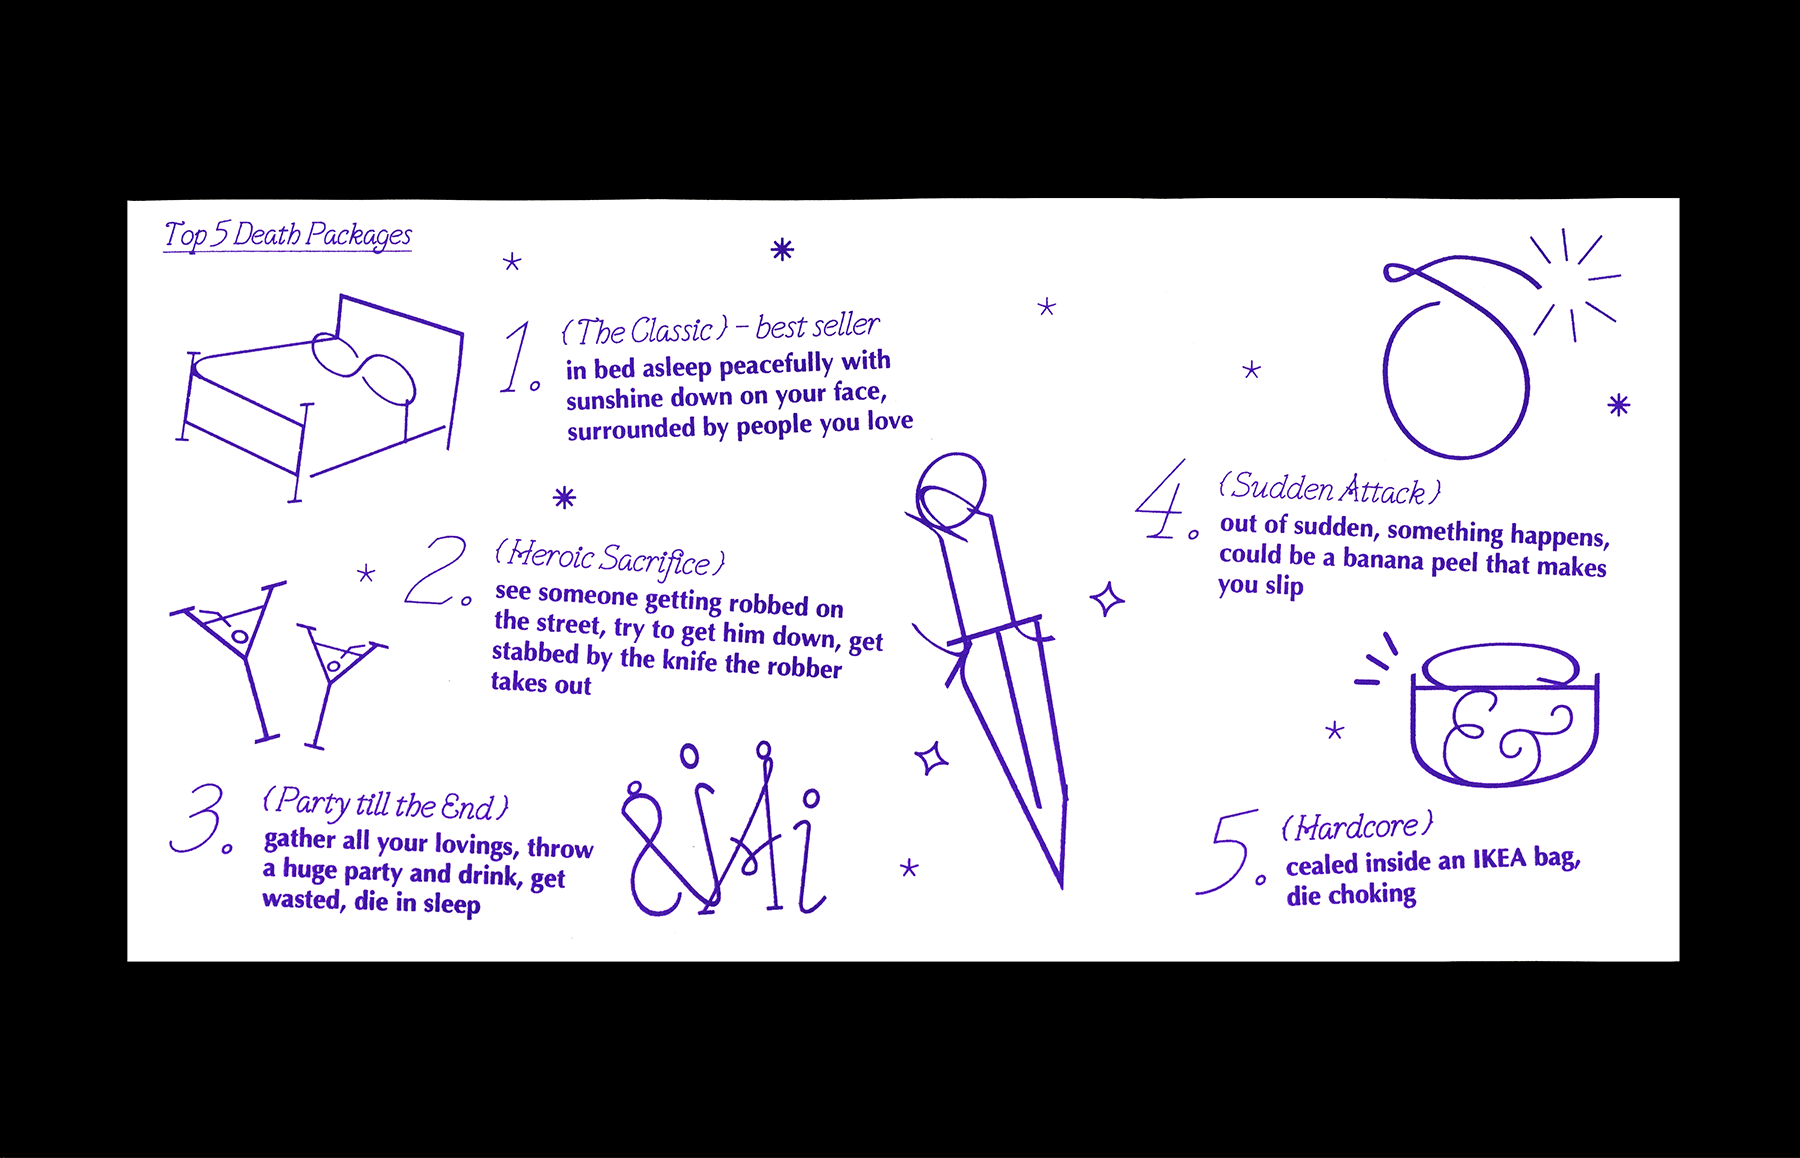 Top 5 Death Packages
1. (The Classic) – best seller
in bed asleep peacefully with
sunshine down on your face,
surrounded by people you love
2. (Heroic Sacrifice)
see someone getting robbed on
the street, try to get him down, get
stabbed by the knife the robber
takes out
3. (Party till the End)
gather all your lovings, throw
a huge party and drink, get
wasted, die in sleep
4. (Sudden Attack)
out of sudden, something happens,
could be a banana peel that makes
you slip
5. (Hardcore)
cealed inside an IKEA bag,
die choking